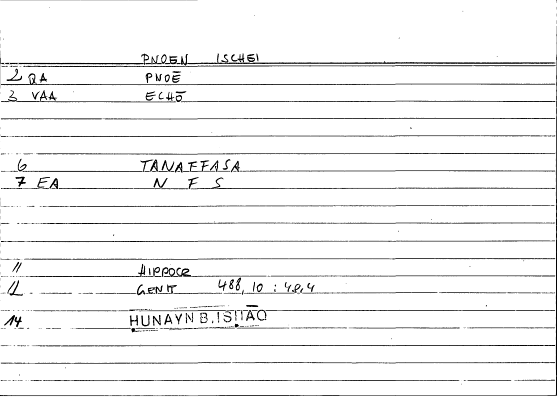 PNOEN ISCHEI
2 QA PNOĒ
3 VAA ECHŌ
6 TANAFFASA
7 EA N F S
11 HIPPOCR
12 GENIT 488, 10 : 48,4
14 ḤUNAYN B. ISḤĀQ